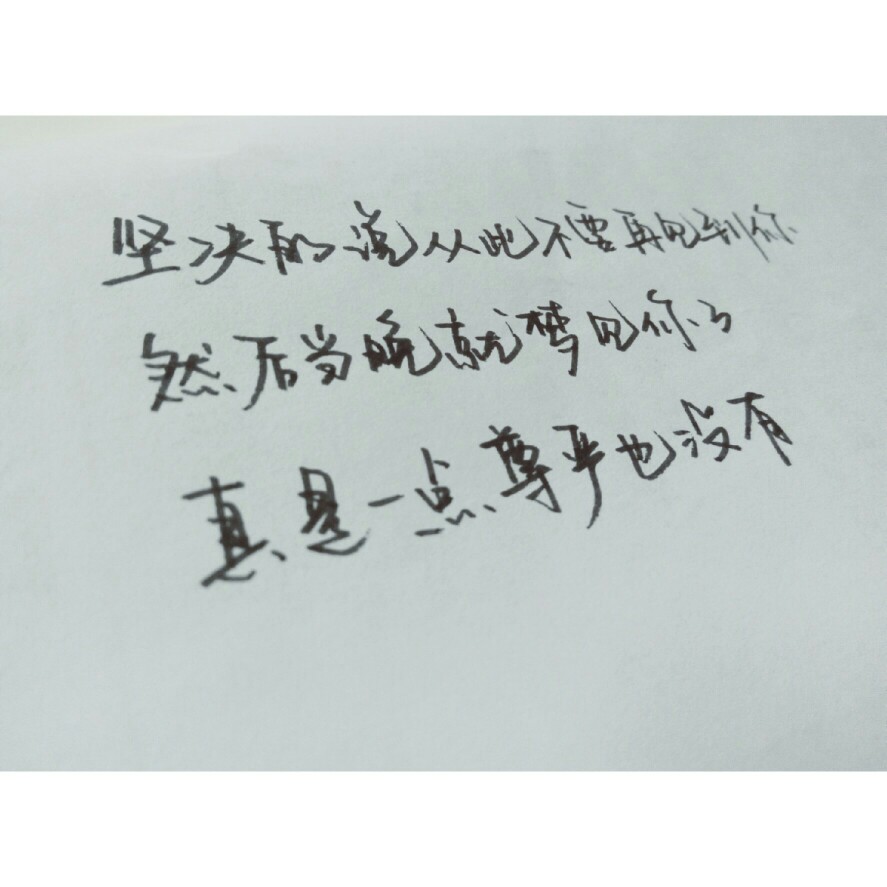 坚决的说从此不要再见到你
然后当晚就梦见你了
真是一点尊严也没有